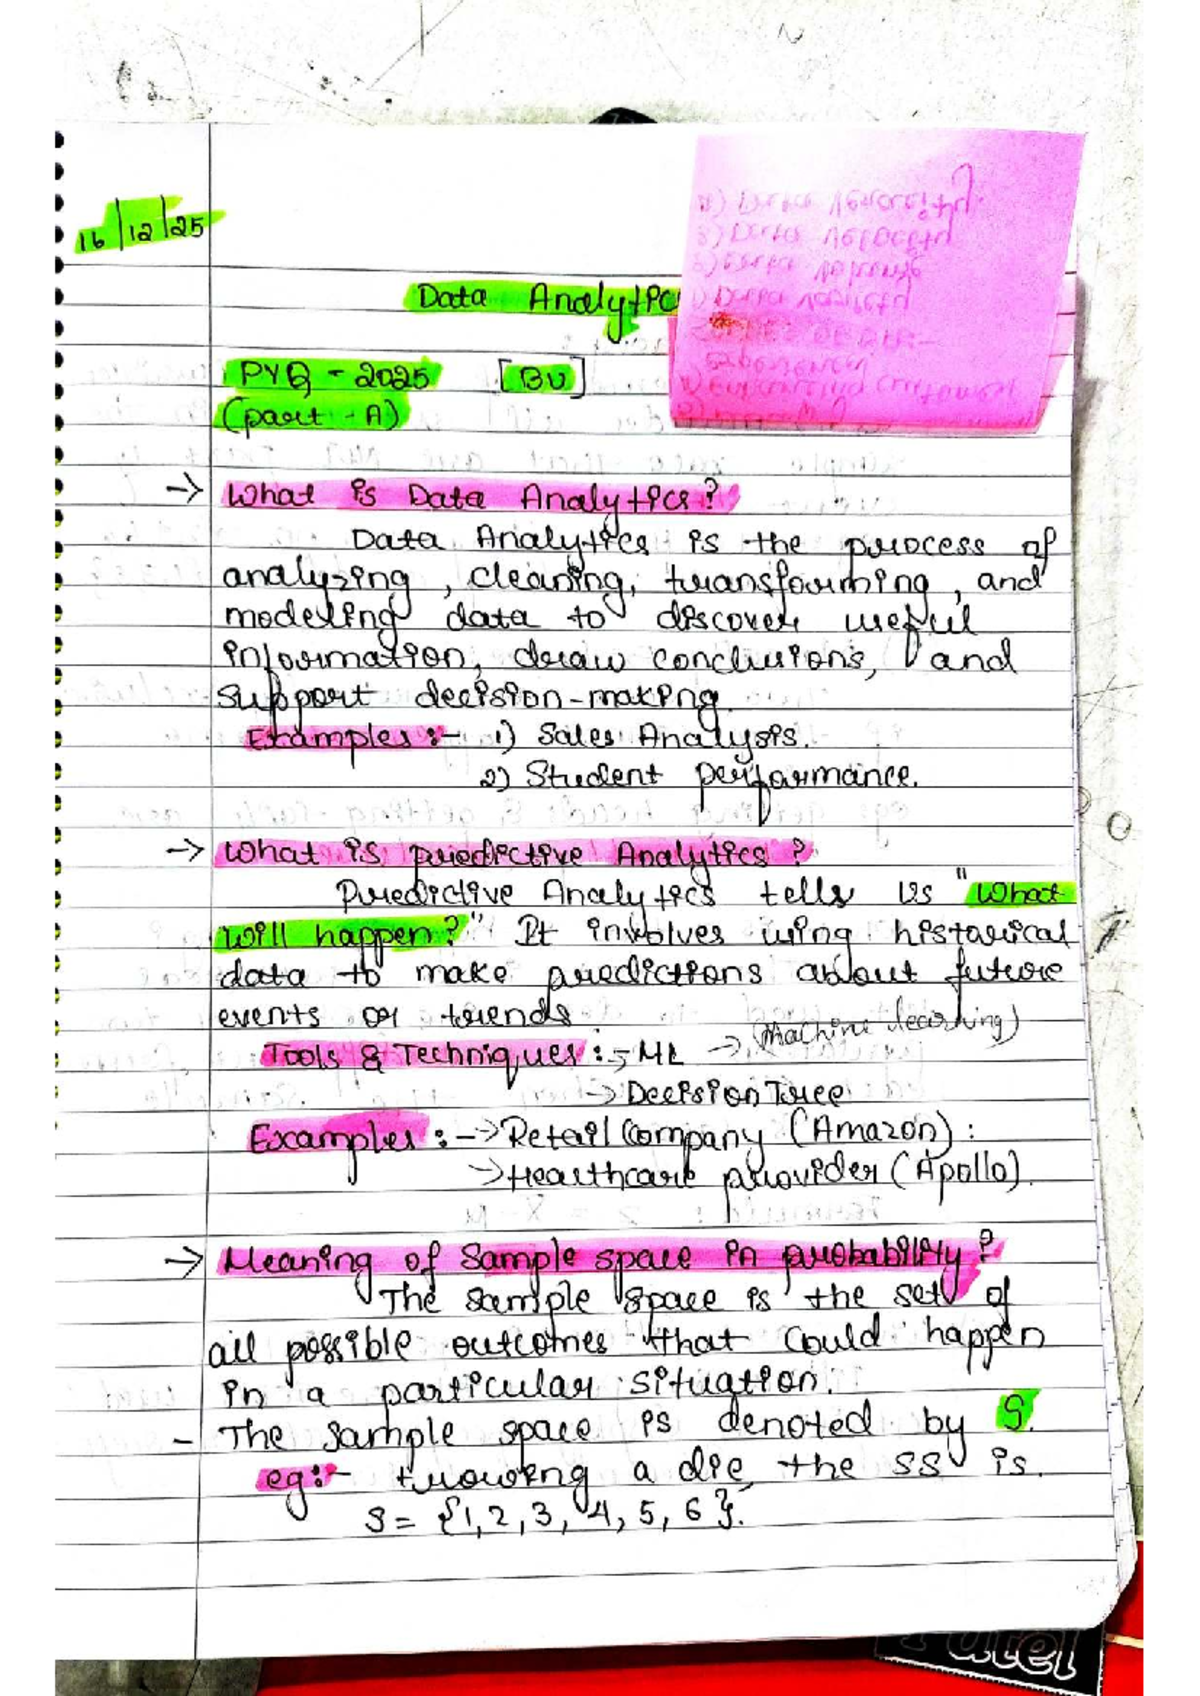 16/12/25
Data Analytic
PYQ - 2025 [BU]
(part - A)
→ What is Data Analytics?
Data Analytics is the process of
analyzing, cleaning, transforming, and
modeling data to discover useful
information, draw conclusions, and
support decision-making.
Examples :- 1) Sales Analysis.
2) Student performance.
→ What is predictive Analytics?
Predictive Analytics tells us "What
will happen?" It involves using historical
data to make predictions about future
events or trends
Tools & Techniques :→ ML → (Machine learning)
→ Decision Tree
Examples :-→ Retail Company (Amazon) :
→ Healthcare provider (Apollo).
→ Meaning of Sample space in probability?
The sample space is the set of
all possible outcomes that could happen
in a particular situation.
- The sample space is denoted by S.
eg:- trowing a die, the SS is.
S = {1, 2, 3, 4, 5, 6}.
Patel